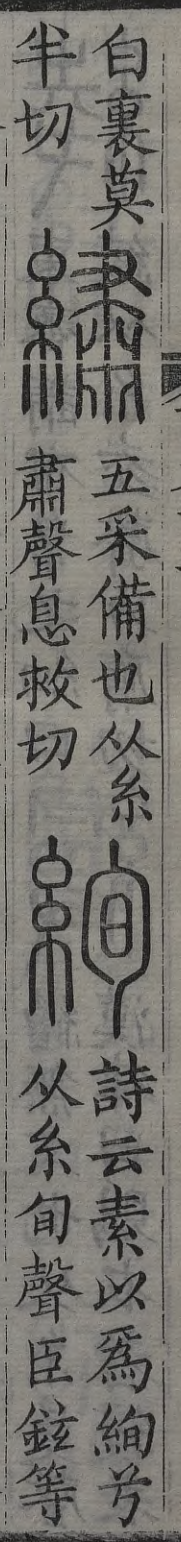 白裏莫
半切
繡
五采備也从糸
肅聲息救切
絢
詩云素以爲絢兮
从糸旬聲臣鉉等